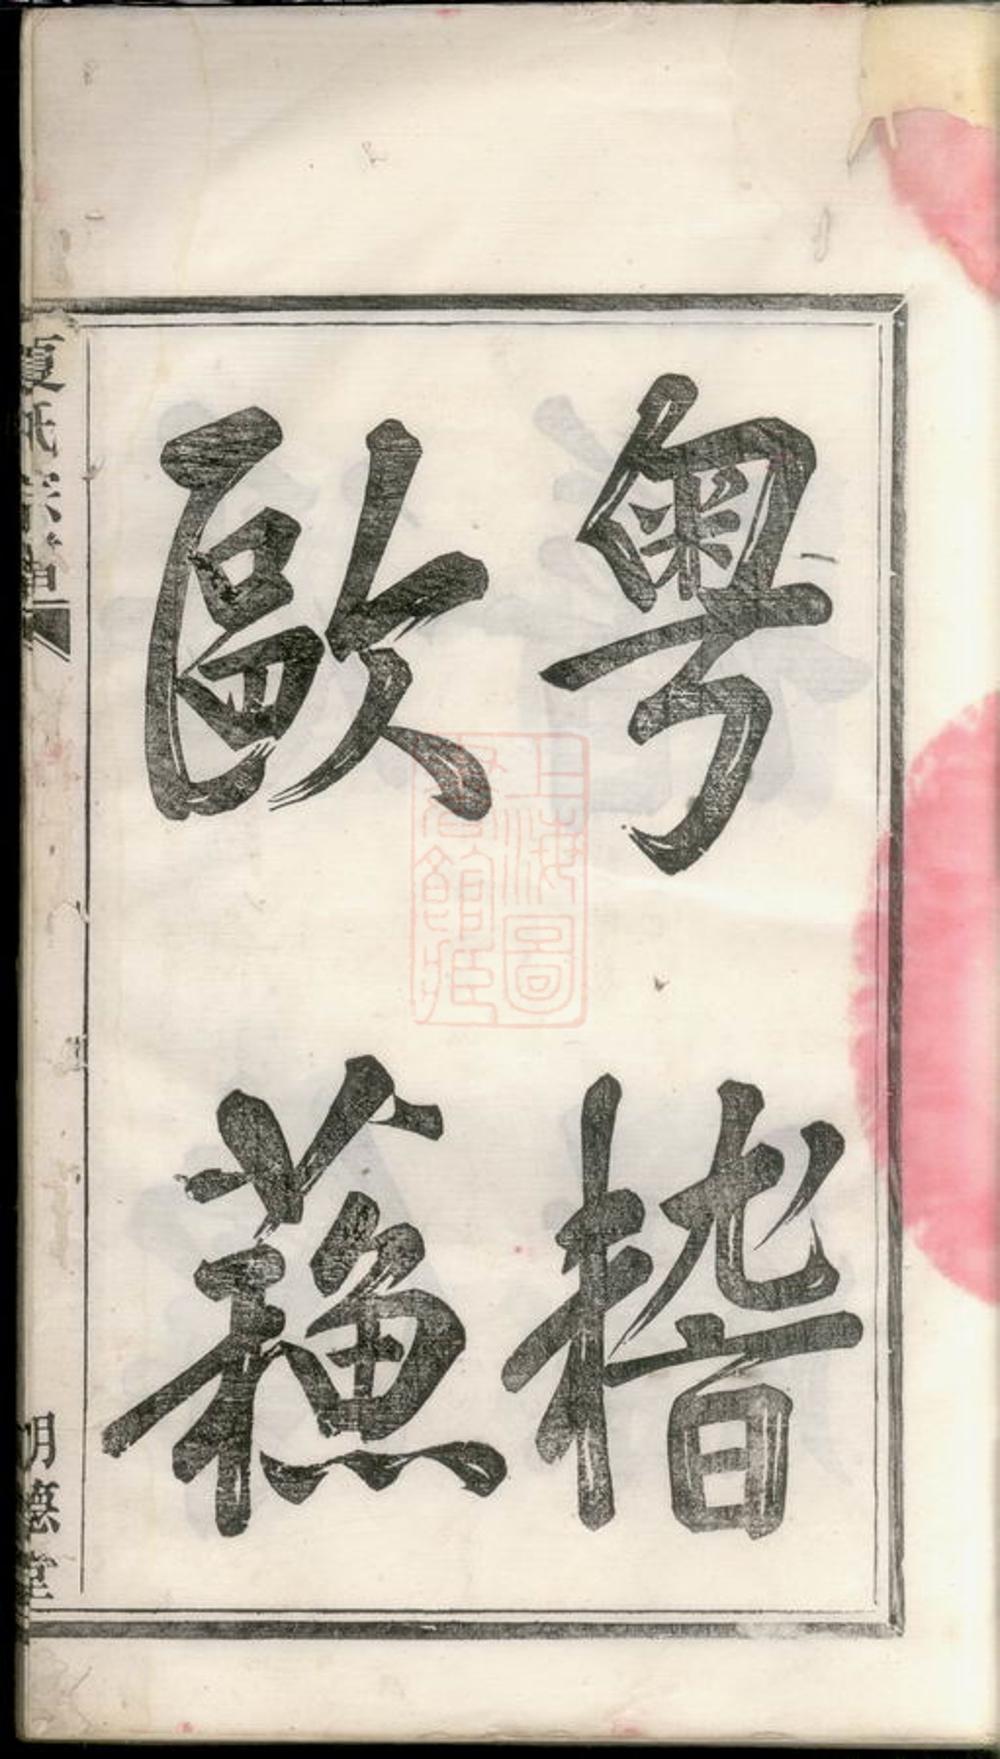 粤稽
歐蘓
夏氏宗譜
明德堂
上海圖
書館藏